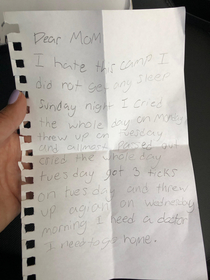 Dear Mom
I hate this camp I
did not get any sleep
Sunday night I cried
the whole day on Monday
threw up on tuesday
and almost passed out
cried the whole day
tuesday got 3 ticks
on tuesday and threw
up again on wednsday
morning I need a doctor
I need to go home.